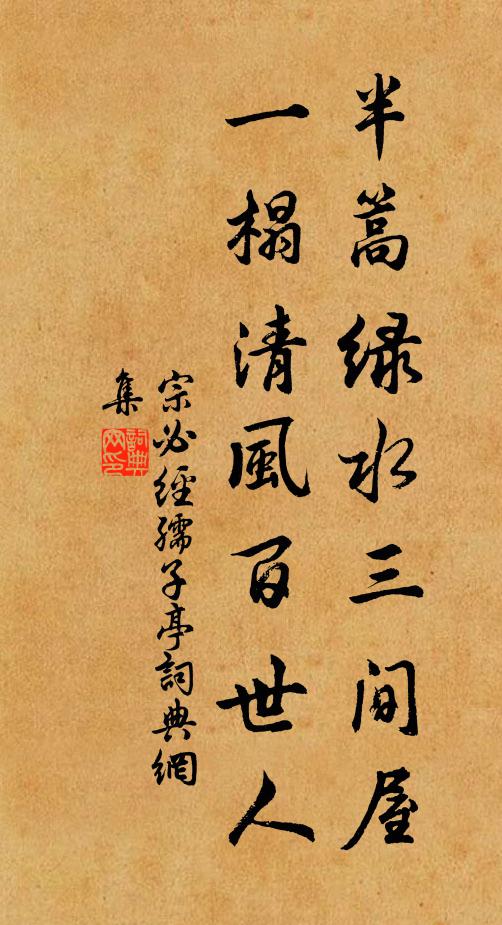 半篙绿水三间屋
一榻清風百世人
宗必經孺子亭詞典網
集
詞典
网印